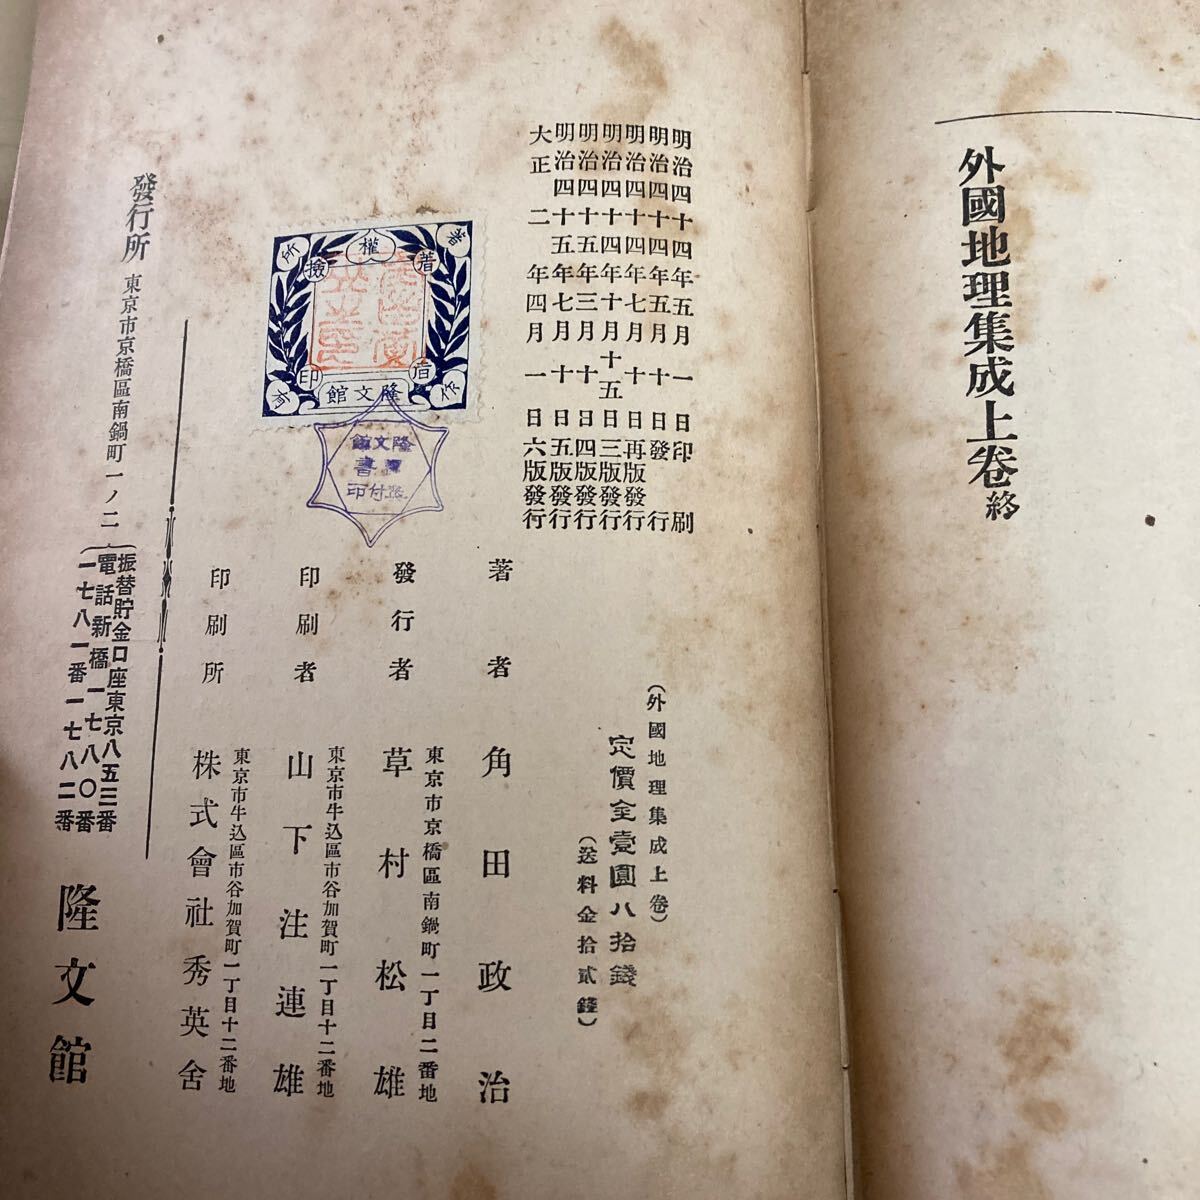 外國地理集成上卷終
明治四十四年五月一日印刷
明治四十四年五月十日發行
明治四十四年七月十日再版發行
明治四十四年十月十五日三版發行
明治四十五年三月十日四版發行
明治四十五年七月十日五版發行
大正二年四月一日六版發行
(外國地理集成上卷)
定價金壹圓八拾錢
(送料金拾貳錢)
著者 角田政治
東京市京橋區南鍋町一丁目二番地
發行者 草村松雄
東京市牛込區市谷加賀町一丁目十二番地
印刷者 山下注連雄
東京市牛込區市谷加賀町一丁目十二番地
印刷所 株式會社秀英舍
著作權所有
著者檢印
隆文館
隆文館
書
付印
發行所 東京市京橋區南鍋町一ノ二
振替貯金口座東京八五三番
電話新橋一七八〇番
一七八一番一七八二番
隆文館